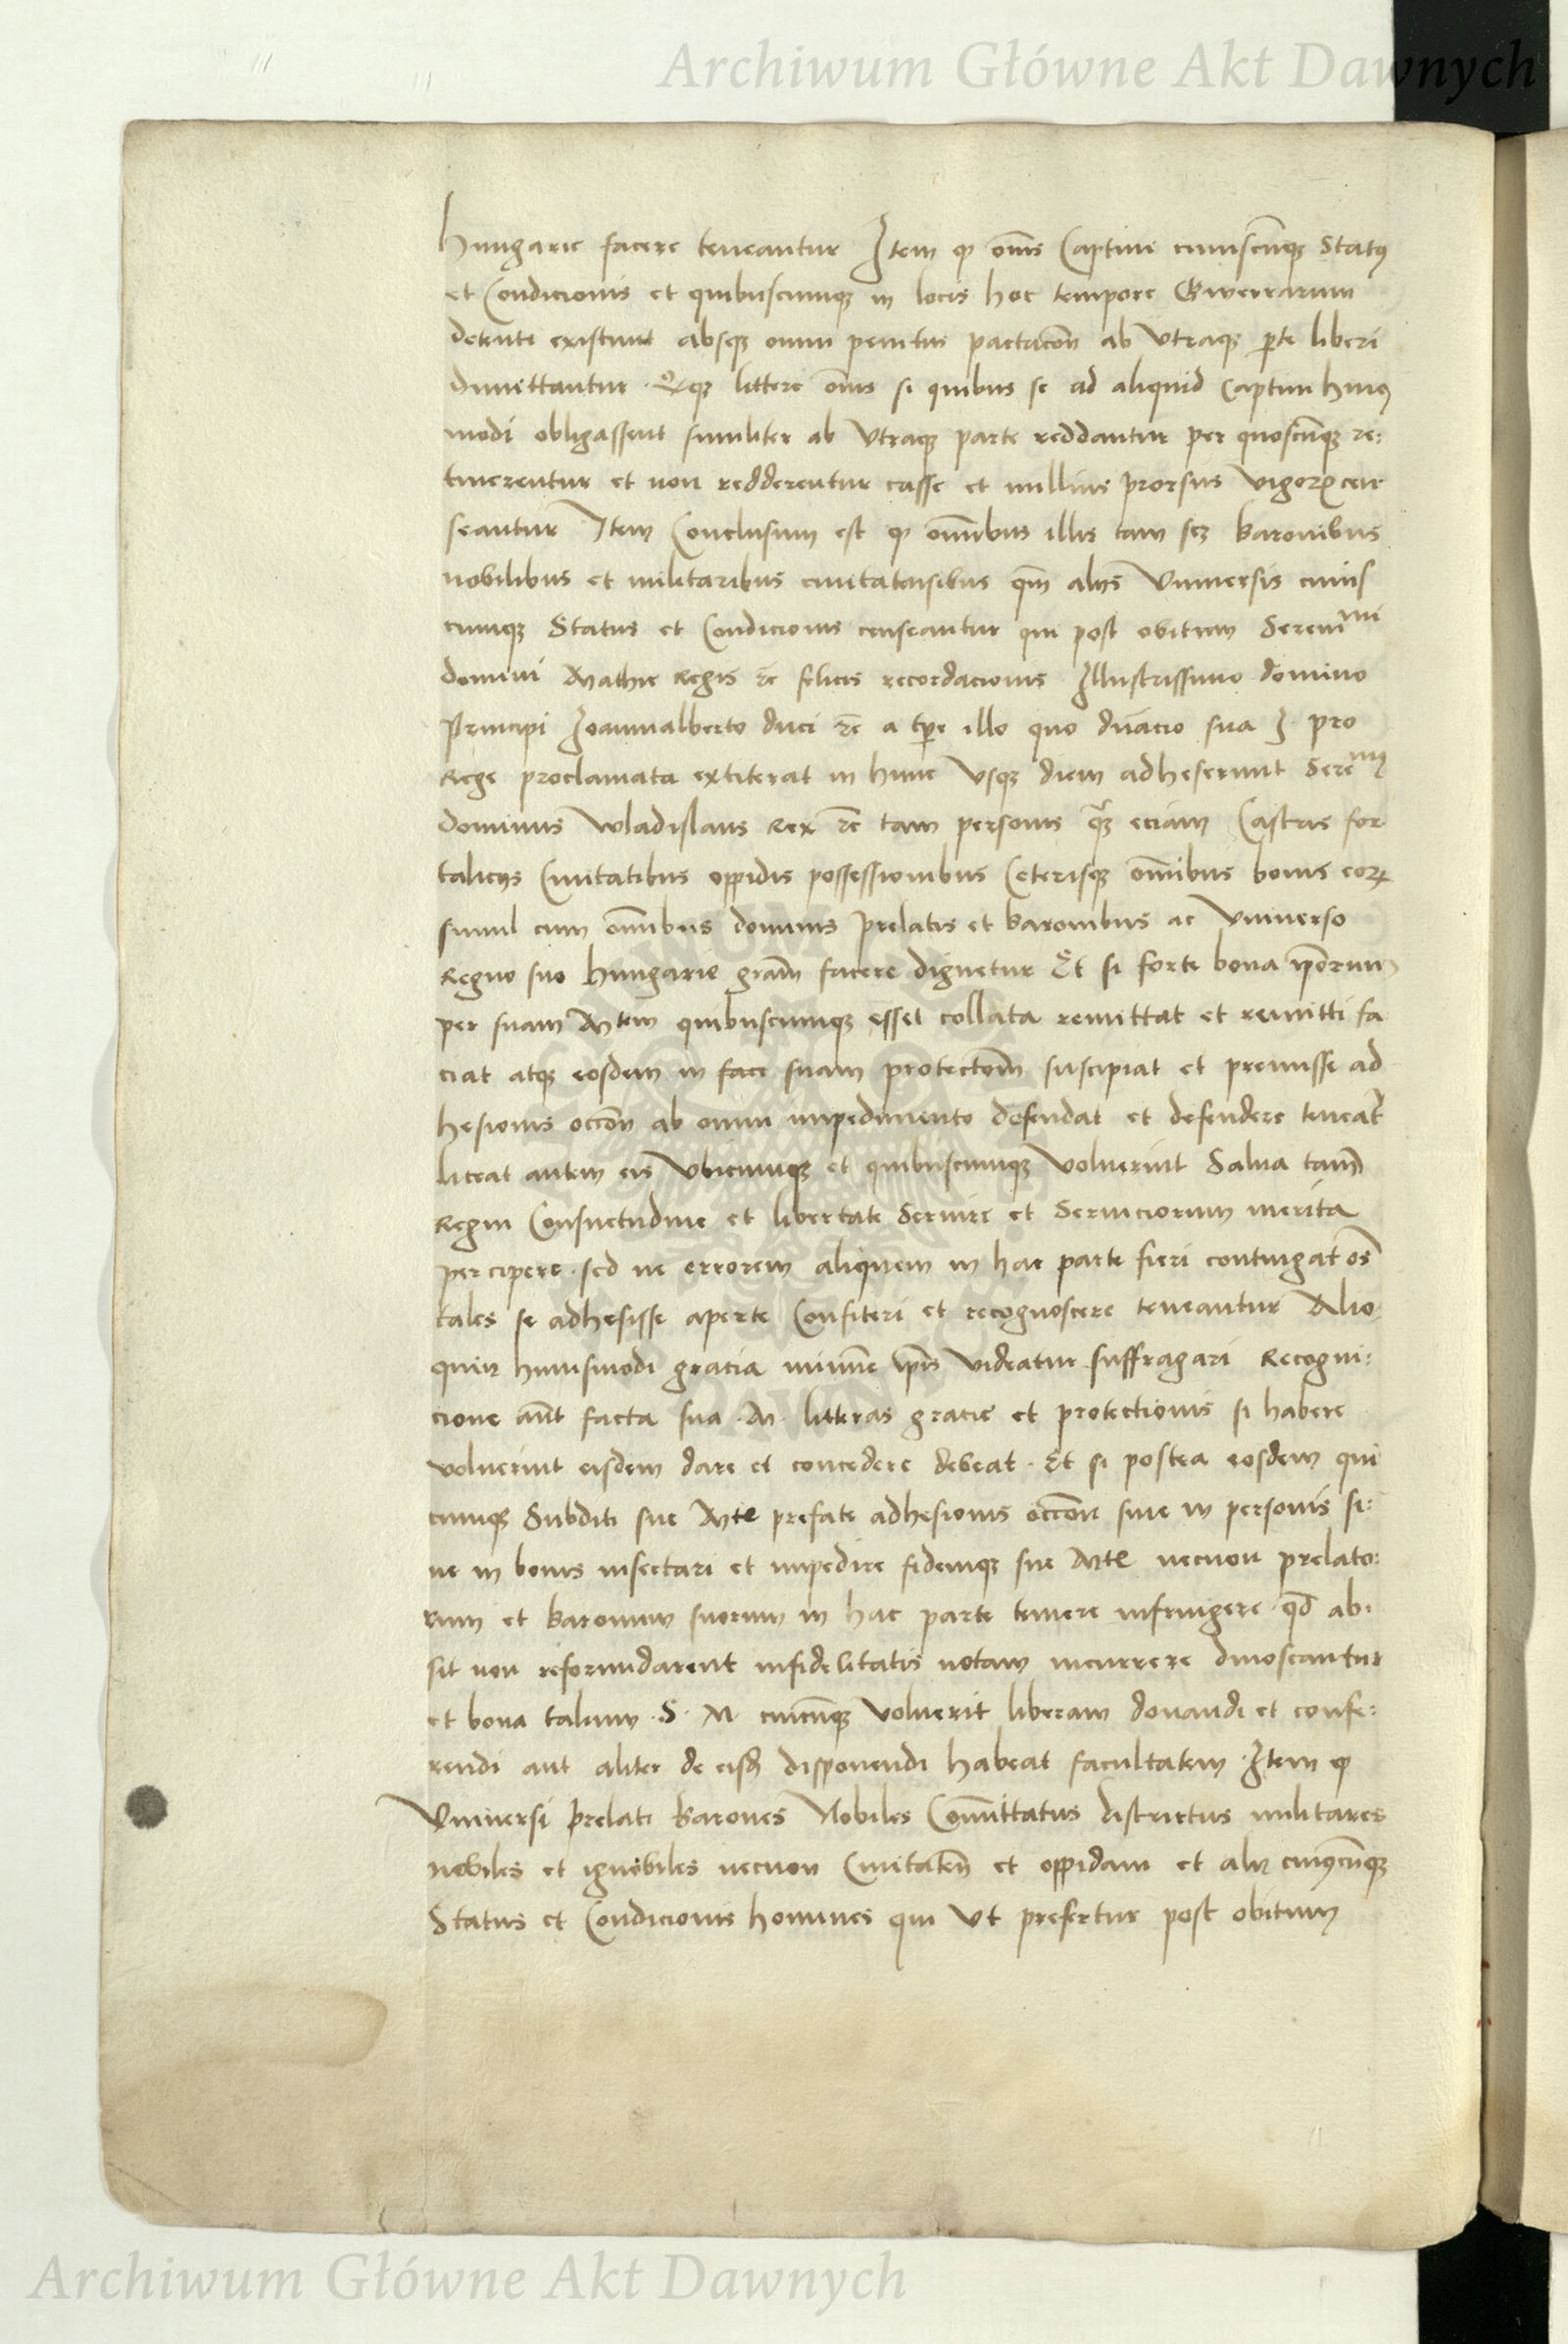 Archiwum Główne Akt Dawnych
Hungarie facere teneantur Item ꝙ om̄s Captiui cuiuscūqꝫ Statꝰ
et Condicionis et quibuscumqꝫ in locis hoc tempore Gwerrarum
detenti existunt absqꝫ omni penitus pactacōn ab Vtraqꝫ ꝑte liberi
dimittantur. Eqꝫ littere om̄s si quibus se ad aliquid Captiui huiꝰ
modi obligassent similiter ab Vtraqꝫ parte reddantur per quoscūqꝫ re:
tinerentur et non redderentur casse et nullius prorsus vigorꝭ cen
seantur Item Conclusum est ꝙ om̄ibus illis tam scꝫ baronibus
nobilibus et militaribus ciuitatensibus qm̄ alijs Vniuersis cuius
cumqꝫ Status et Condicionis censeantur qui post obitum Sereniᵐⁱ
domini Mathie Regis ⁊c̄ felicis recordacionis Illustrissimo domino
Principi Joannialberto duci ⁊c̄ a tꝑe illo quo dn̄acio sua J. pro
Rege proclamata extiterat in hunc Vsqꝫ diem adheserunt Sereᵐꝰ
dominus Wladislaus Rex ⁊c̄ tam personis qꝫ eciam Castris for
talicijs Ciuitatibus oppidis possessionibus Ceterisqꝫ om̄ibus bonis eorꝝ
simul cum om̄ibus dominis prelatis et baronibus ac Vniuerso
Regno suo Hungarie gram̄ facere dignetur Et si forte bona ip̄orum
per suam Mtem quibuscumqꝫ esset collata remittat et remitti fa
ciat atqꝫ eosdem in faci suam protectōm suscipiat et premisse ad
hesionis occōn ab omni impedimento defendat et defendere teneat̄
liceat autem eis Vbicumqꝫ et quibuscumqꝫ Voluerint Salua tam̄
Regni Consuetudine et libertate Seruire et Seruiciorum merita
percipere. sed ne errorem aliquem in hac parte fieri contingat om̄s
tales se adhesisse aperte Confiteri et recognoscere teneantur Alio
quin huiusmodi gracia minime ip̄is Videatur suffragari Recogni:
cione aūt facta sua. M. litteras gracie et protectionis si habere
voluerint eisdem dare et concedere debeat. Et si postea eosdem qui
cumqꝫ Subditi sue Mtis prefate adhesionis occōn siue in personis si:
ue in bonis insectari et impedire fidemqꝫ sue Mtis necnon prelato:
rum et baronum suorum in hac parte temere infringere qd̄ ab:
sit non reformidarent infidelitatis notam incurrere dinoscantur
et bona talium. S. M. cuicūqꝫ Voluerit liberam donandi et confe:
rendi aut aliter de eisd̄ disponendi habeat facultatem. Item ꝙ
Vniuersi prelati barones Nobiles Com̄ittatus districtus militares
nobiles et ignobiles necnon Ciuitateñ et oppidani et alij cuiꝰcūqꝫ
Status et Condicionis homines qui Vt prefertur post obitum
Archiwum Główne Akt Dawnych